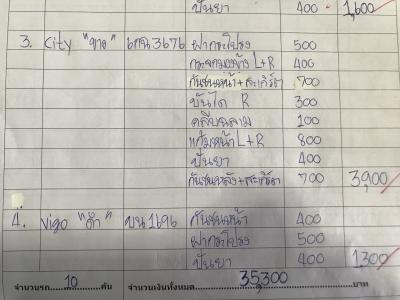 ปั่นยา 400 1,600
3. City "ขาว" 6กฉ 3676 ฝากระโปรง 500
กระจกมองข้าง L+R 400
กันชนหน้า+สเกิร์ต 700
บันได R 300
คลีบฉลาม 100
แก้มหน้า L+R 800
ปั่นยา 400
กันชนหลัง+สเกิร์ต 700 3,900
4. Vigo "ดำ" บน 1696 กันชนหน้า 400
ฝากระโปรง 500
ปั่นยา 400 1,300
จำนวนรถ 10 คัน จำนวนเงินทั้งหมด 35,300 บาท